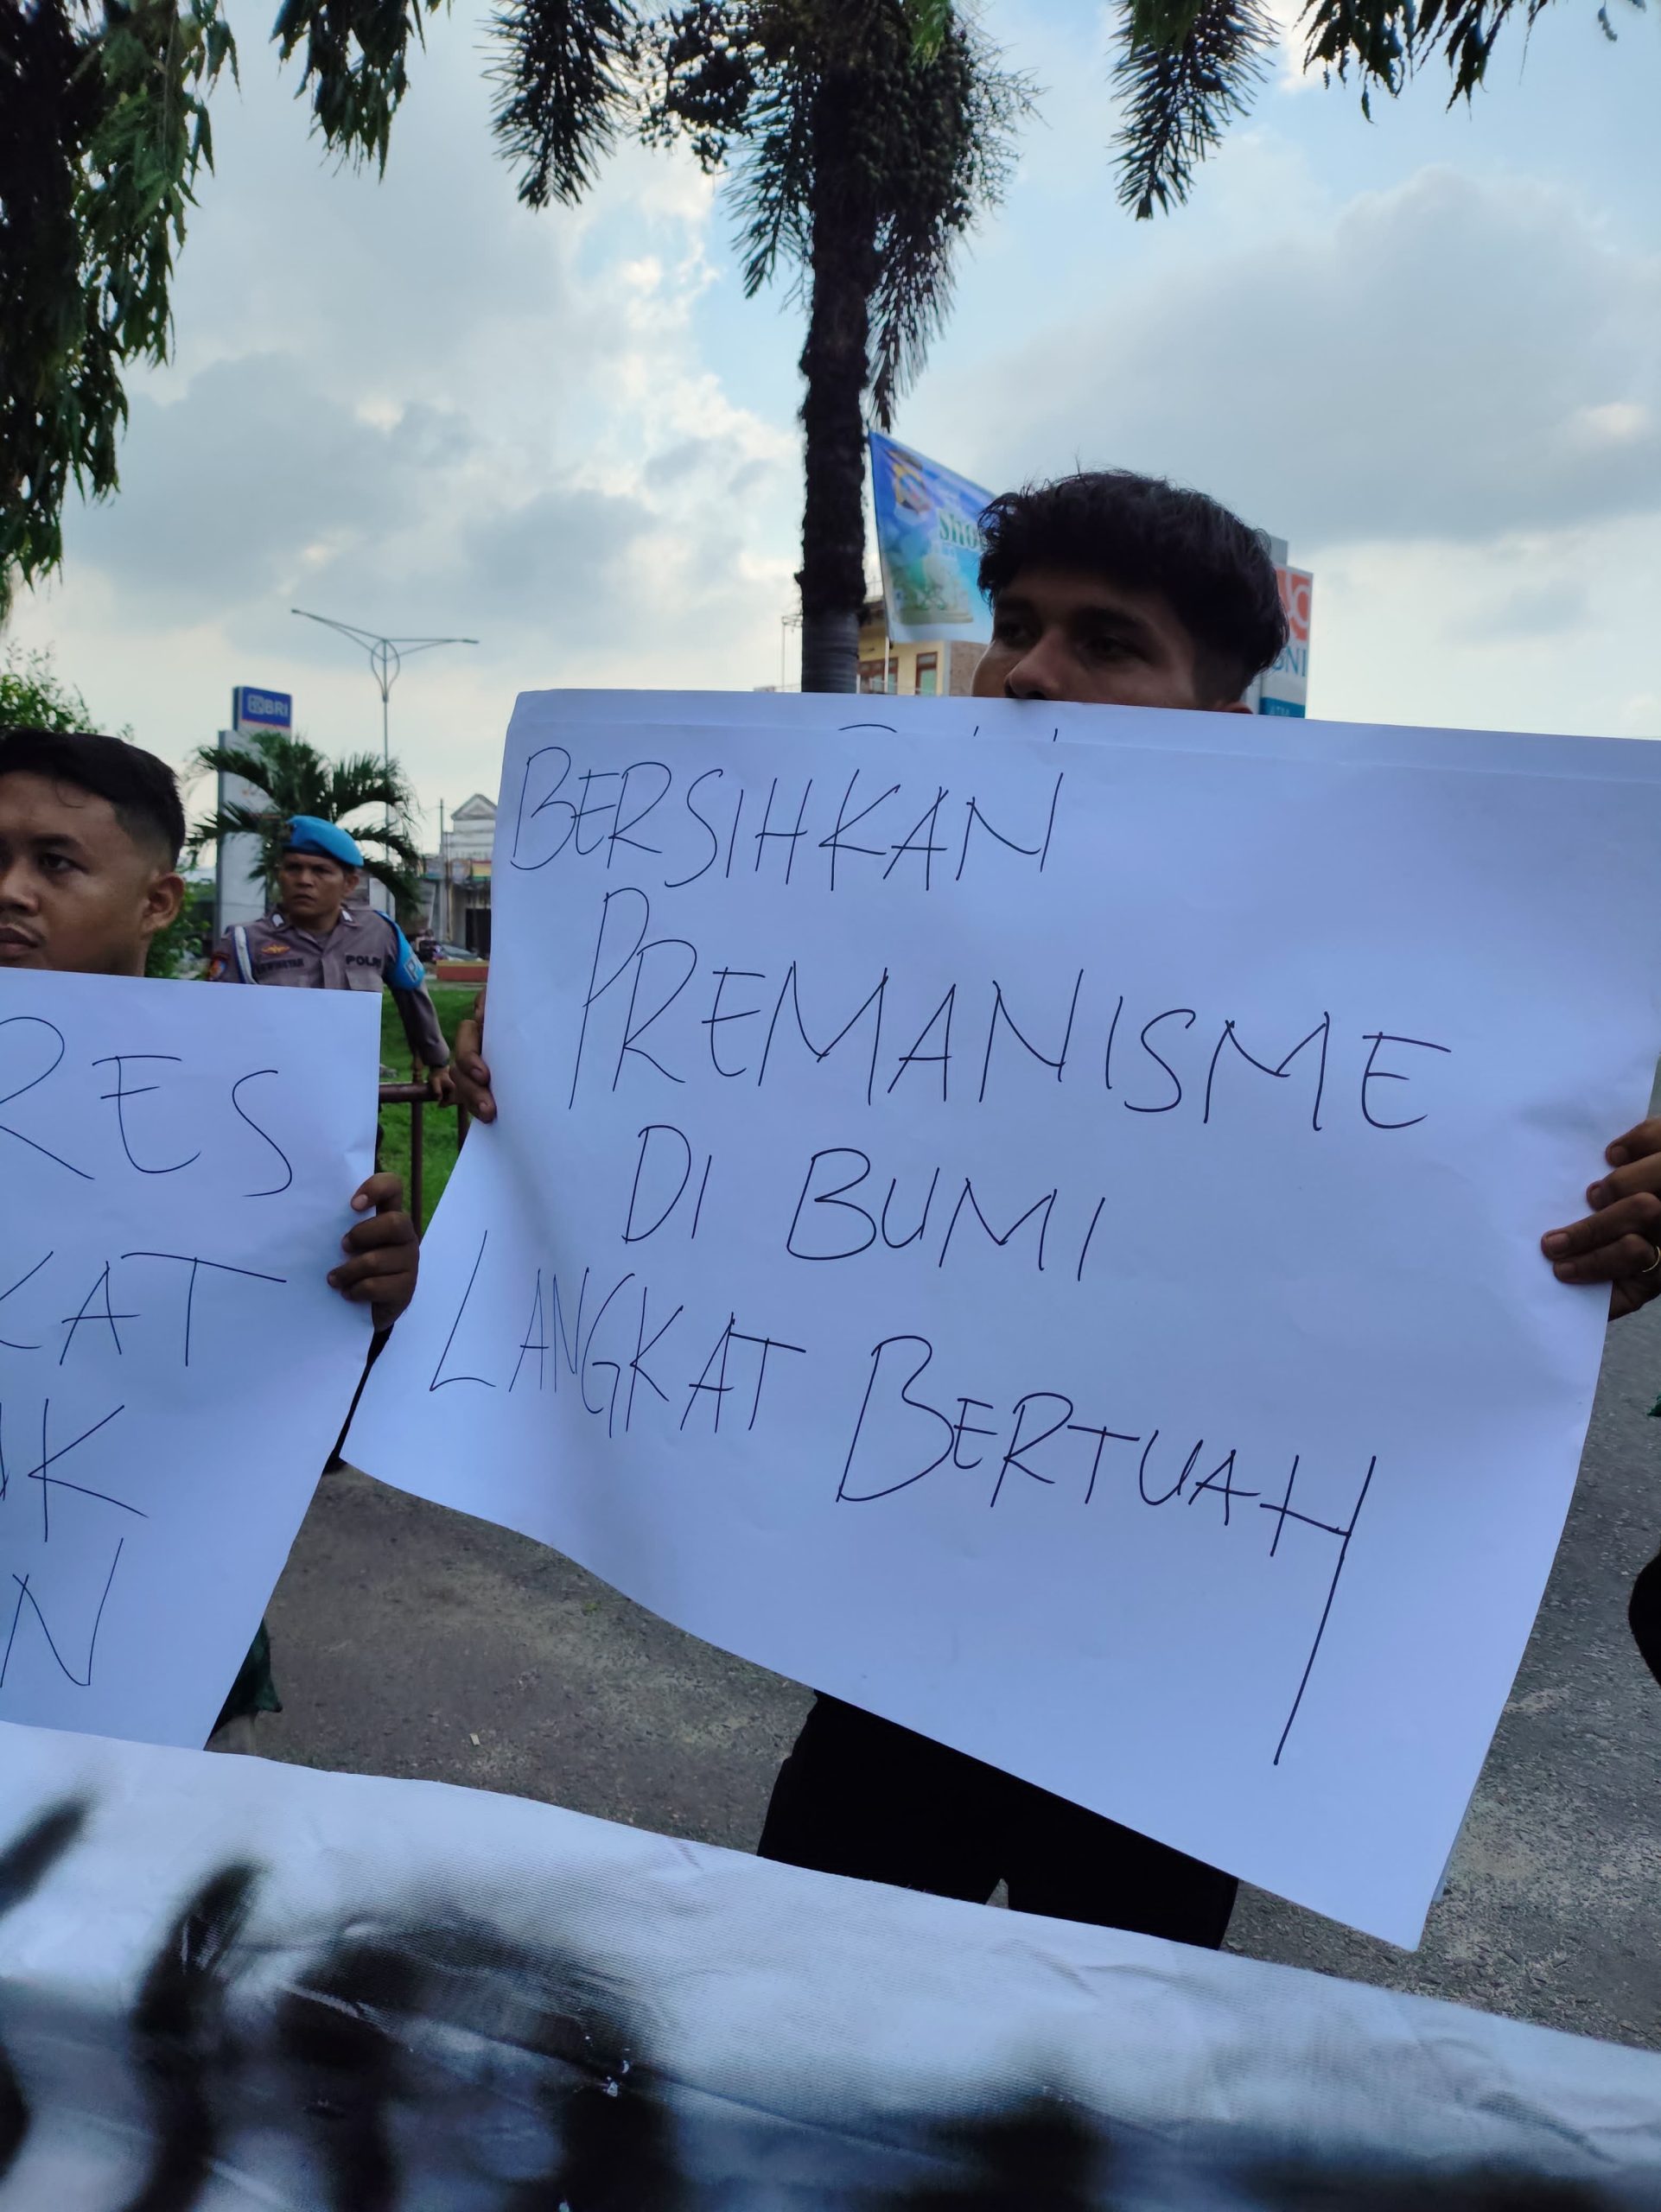 BRI
BNI
POLRI
BERSIHKAN
PREMANISME
DI BUMI
LANGKAT BERTUAH
RES
KAT
AK
N